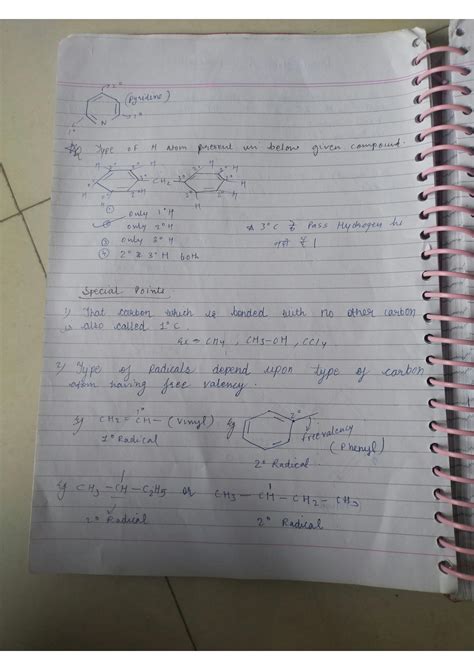 2°
(Pyridine)
1° N 2°
Q Type of H atom present in below given compound.
H H H H
H 2° 2° 3° CH₂ 3° 2° 2° H
H H H H
① only 1° H
② only 2° H
③ only 3° H
④ 2° & 3° H both
* 3° C के पास Hydrogen
नहीं है |
Special Points
1) That carbon which is bonded with no other carbon
is also called 1° C.
Ex = CH₄ , CH₃-OH , CCl₄
2) Type of Radicals depend upon type of carbon
atom having free valency.
eg CH₂ = CH - (vinyl)
1°
1° Radical
eg 2°
free valency
(Phenyl)
2° Radical
eg CH₃ - CH - C₂H₅ or CH₃ - CH - CH₂ - CH₃
2° Radical
2° Radical